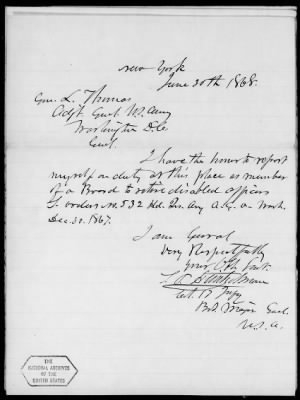 New York
June 30th 1868.
Gen. L. Thomas
Adjt Genl U.S. Army
Washington D.C.
Genl.
I have the honor to report
myself on duty at this place as member
of a Board to retire disabled officers
S. orders No. 532 Hd. Qrs. Army A.G.O. Wash.
Dec. 31. 1867.
I am General
Very Respectfully
Your Obt Svt.
Col.
Bvt Major Genl.
U.S.A.
THE
NATIONAL ARCHIVES
OF THE
UNITED STATES